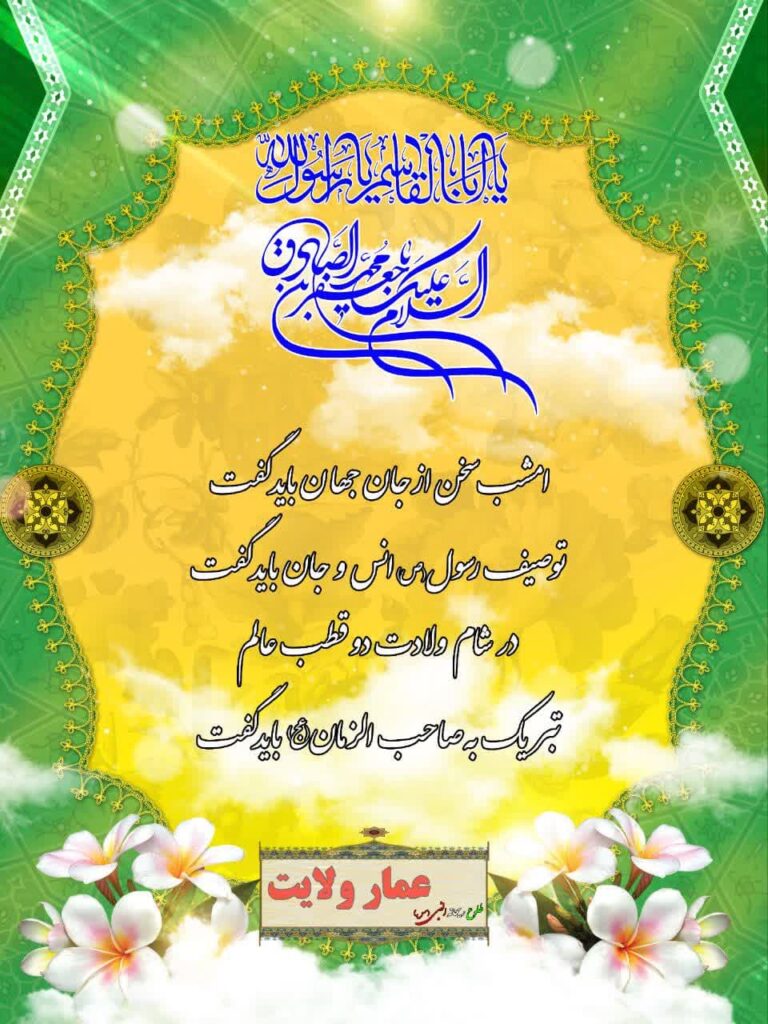 یا اباالقاسم یا رسول الله
السلام علیک یا جعفر بن محمد الصادق
امشب سخن از جان جهان باید گفت
توصیف رسول (ص) انس و جان باید گفت
در شام ولادت دو قطب عالم
تبریک به صاحب الزمان (عج) باید گفت
عمار ولایت